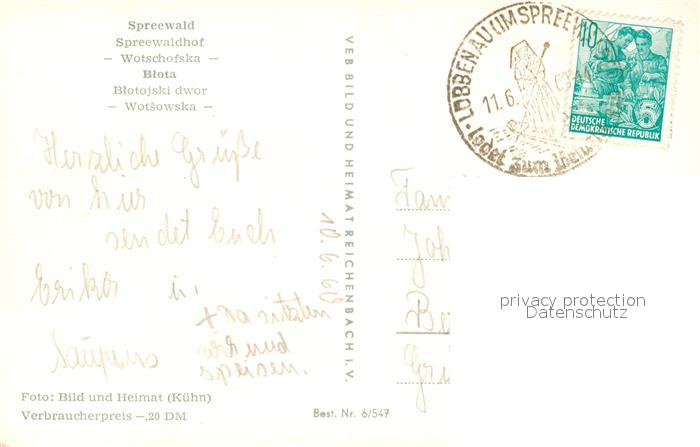 Spreewald
Spreewaldhof
– Wotschofska –
Błota
Błotojski dwor
– Wotšowska –
Herzliche Grüße
von hier
sendet Euch
Erika u.
+ Da sitzten
wir und
speisen.
10.6.60
VEB BILD UND HEIMAT REICHENBACH I. V.
LÜBBENAU (UM SPREEW
11.6.
ladet zum
10
5
DEUTSCHE
DEMOKRATISCHE REPUBLIK
Fam
Joh
Be
Gr
privacy protection
Datenschutz
Foto: Bild und Heimat (Kühn)
Verbraucherpreis –,20 DM
Best. Nr. 6/547